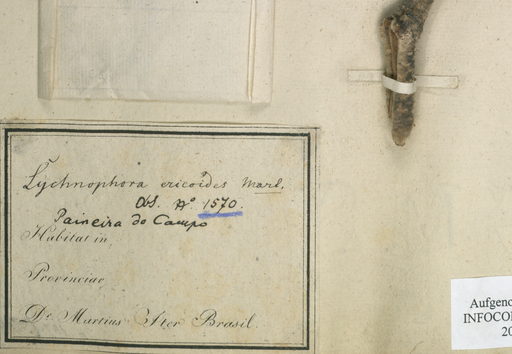 Lychnophora ericoides Mart.
Obs. Nº 1570.
Paineira do Campo
Habitat in
Provinciae
Dr. Martius Iter Brasil.
Aufgenc
INFOCOL
20